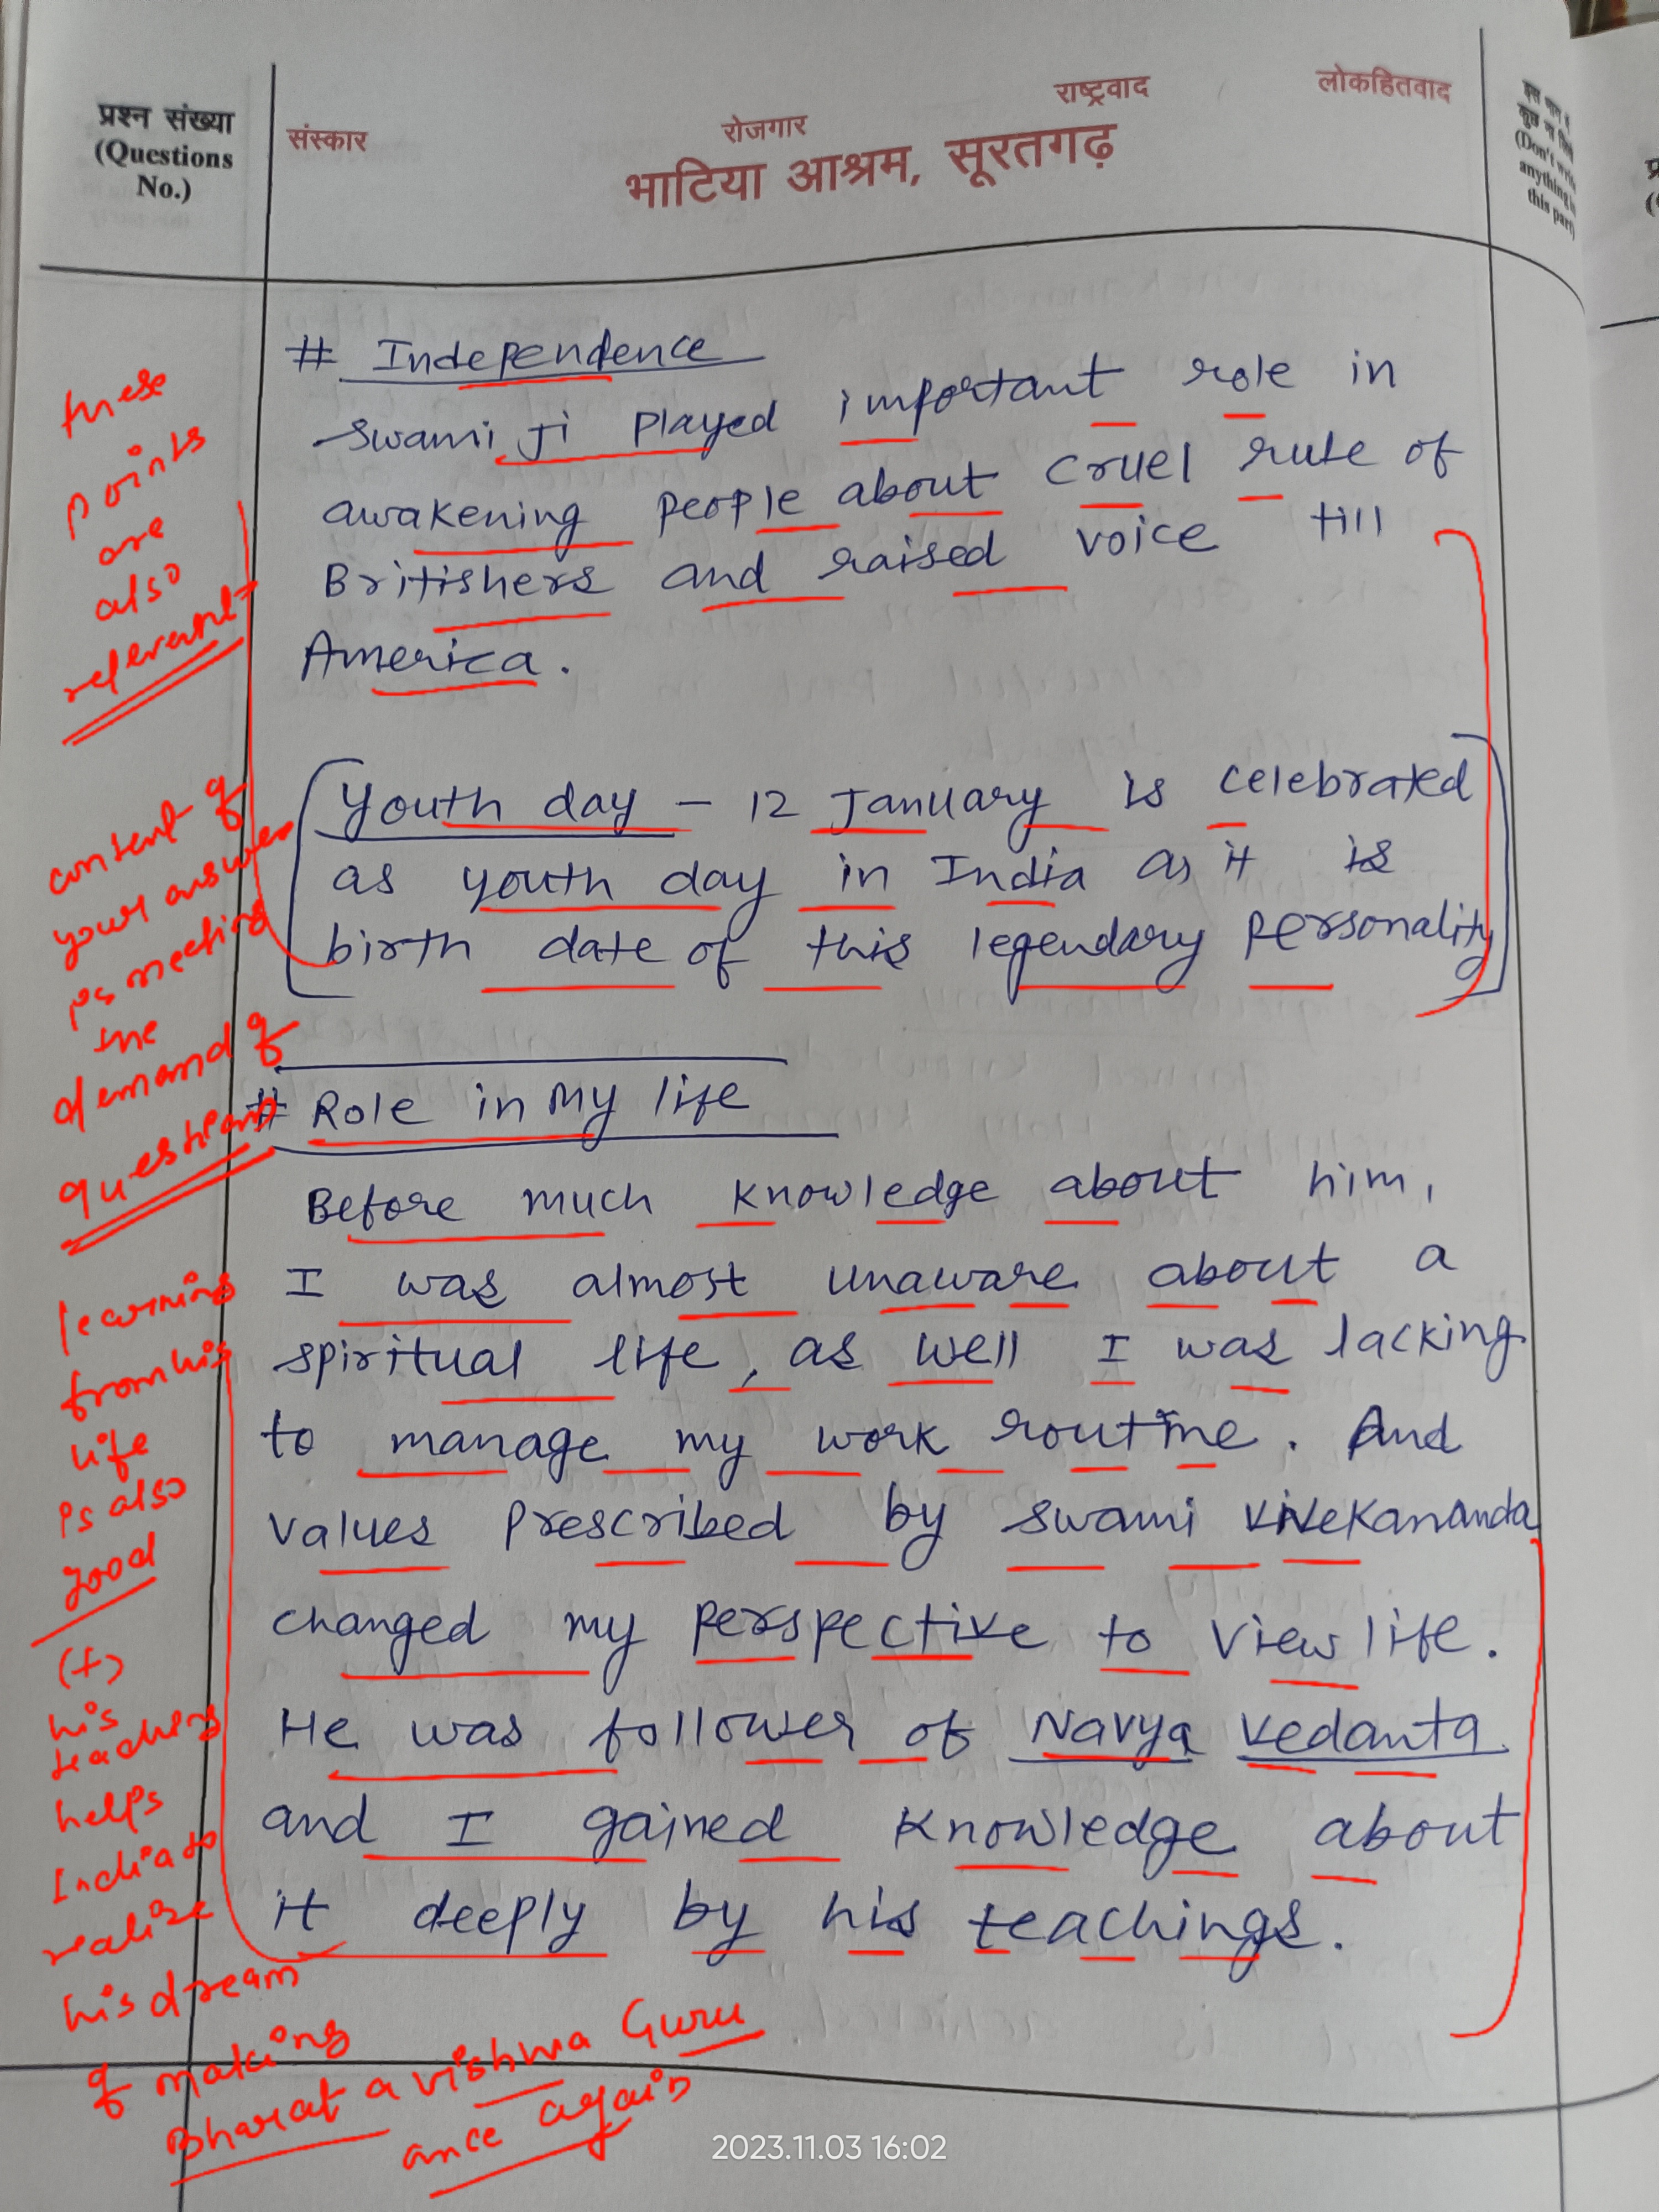 प्रश्न संख्या
(Questions
No.)
संस्कार
रोजगार
राष्ट्रवाद
लोकहितवाद
भाटिया आश्रम, सूरतगढ़
(Don't
anything
this part)
# Independence
Swami Ji Played important role in
awakening people about cruel rule of
Britishers and raised voice till
America.
Youth day - 12 January is celebrated
as youth day in India as it is
birth date of this legendary personality
# Role in My life
Before much knowledge about him,
I was almost unaware about a
spiritual life, as well I was lacking
to manage my work routine. And
values prescribed by swami vivekananda
changed my perspective to view life.
He was follower of Navya vedanta
and I gained knowledge about
it deeply by his teachings.
these
points
are
also
relevant
content of
your answer
is meeting
the
demand of
question
learning
from his
life
is also
good
(+)
his
helps
India to
realize
his dream
of making
Bharat a vishwa Guru
once again
2023.11.03 16:02